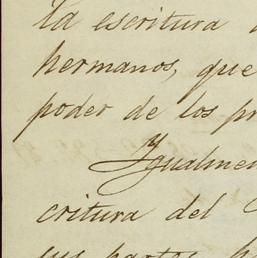 la escritura
hermanos, que
poder de los pr
Igualmen
critura del
sus partes, h